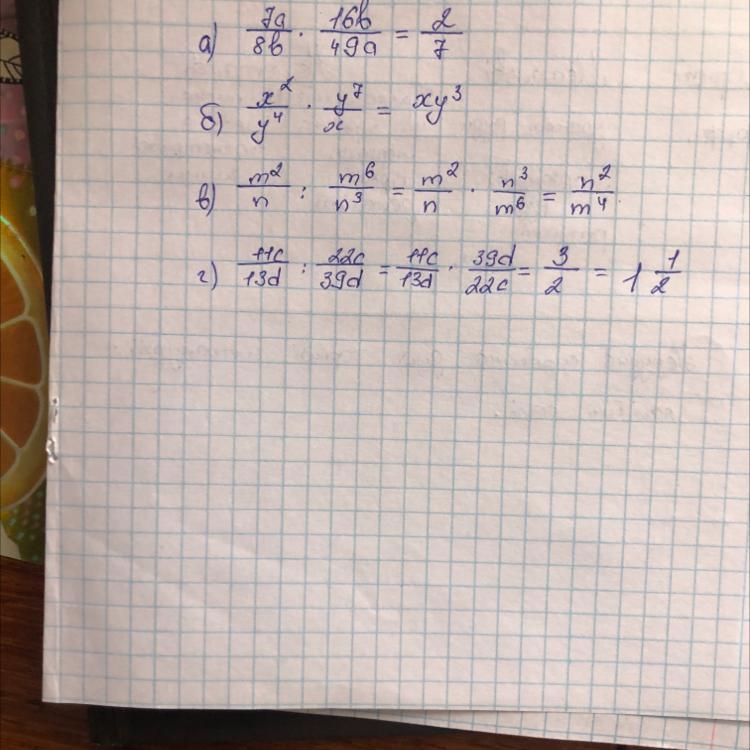 а) 7a/8b · 16b/49a = 2/7
б) x²/y⁴ · y⁷/x = xy³
в) m²/n : m⁶/n³ = m²/n · n³/m⁶ = n²/m⁴
г) 11c/13d : 22c/39d = 11c/13d · 39d/22c = 3/2 = 1 1/2